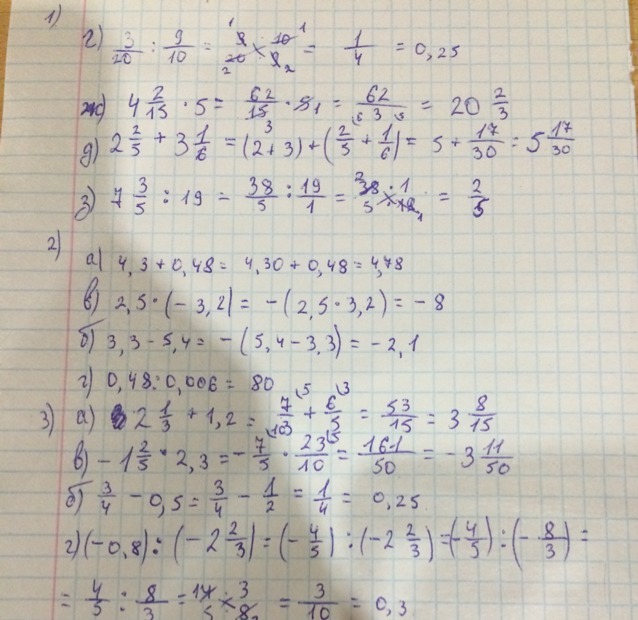 1)
г) 3/20 : 9/10 = 9/20 × 10/9 = 1/4 = 0,25
ж) 4 2/15 · 5 = 62/15 · 5 = 62/3 = 20 2/3
д) 2 2/5 + 3 1/6 = (2+3) + (2/5 + 1/6) = 5 + 17/30 = 5 17/30
з) 7 3/5 : 19 = 38/5 : 19/1 = 38 · 1 / 5 · 19 = 2/5
2)
а) 4,3 + 0,48 = 4,30 + 0,48 = 4,78
в) 2,5 · (-3,2) = -(2,5 · 3,2) = -8
б) 3,3 - 5,4 = -(5,4 - 3,3) = -2,1
г) 0,48 : 0,006 = 80
3) а) 2 1/3 + 1,2 = 7/3 + 6/5 = 53/15 = 3 8/15
в) -1 2/5 · 2,3 = -7/5 · 23/10 = 161/50 = -3 11/50
б) 3/4 - 0,5 = 3/4 - 1/2 = 1/4 = 0,25
г) (-0,8) : (-2 2/3) = (-4/5) : (-2 2/3) = (-4/5) : (-8/3) =
= 4/5 : 8/3 = 4 · 3 / 5 · 8 = 3/10 = 0,3